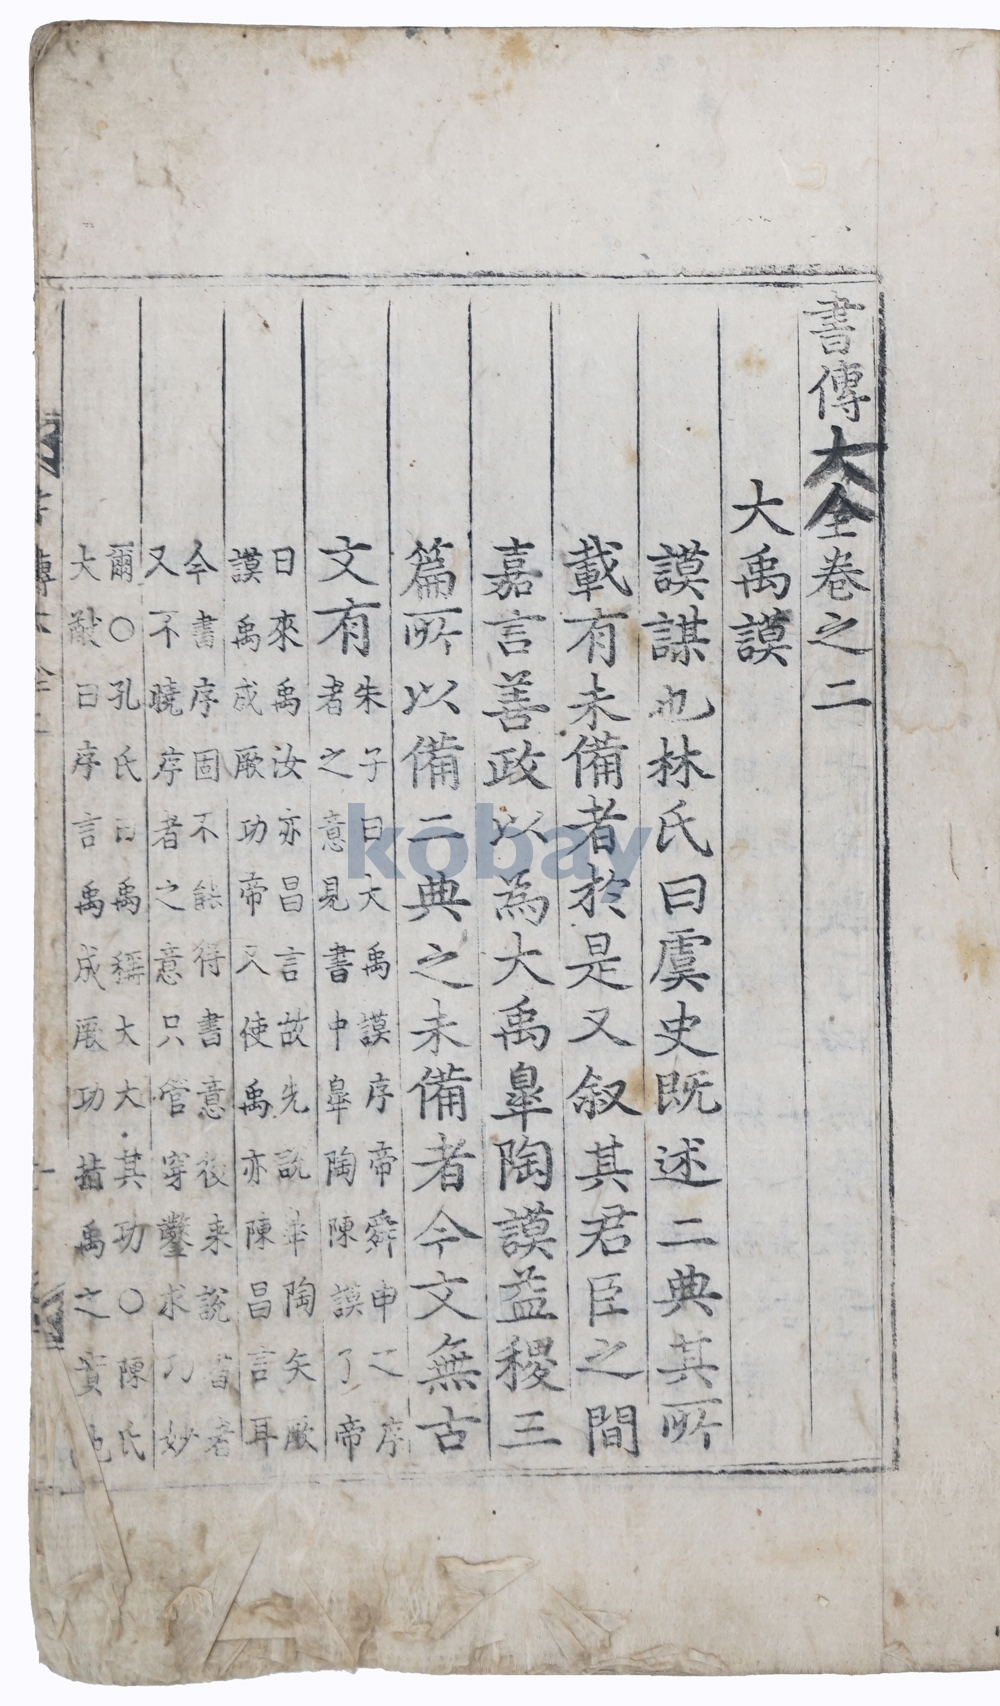 書傳大全卷之二
大禹謨
謨謀也林氏曰虞史既述二典其所
載有未備者於是又叙其君臣之間
嘉言善政以為大禹皐陶謨益稷三
篇所以備二典之未備者今文無古
文有
朱子曰大禹謨序帝舜申之序
者之意見書中皐陶陳謨了帝
曰來禹汝亦昌言故先說皐陶矢厥
謨禹成厥功帝又使禹亦陳昌言耳
今書序固不能得書意後来說書者
又不曉序者之意只管穿鑿求巧妙
爾○孔氏曰禹稱大大其功○陳氏
大猷曰序言禹成厥功指禹之實也
kobay